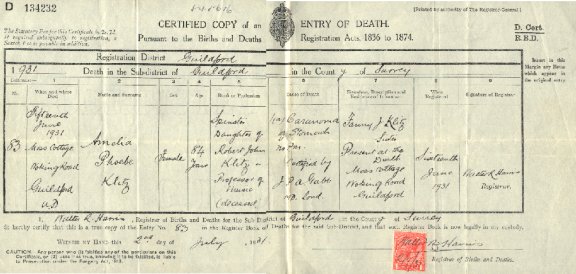 D 134232
CERTIFIED COPY of an ENTRY OF DEATH.
Pursuant to the Births and Deaths Registration Acts, 1836 to 1874.
[Printed by authority of The Registrar General.]
D. Cert.
R.B.D.
The Statutory Fee for this Certificate is 2s. 7d.
If required subsequently to registration, a
Search Fee is payable in addition.
Insert in this
Margin any Notes
which appear in
the original entry
Registration District Guildford
1931. Death in the Sub-district of Guildford in the County of Surrey
Columns:— 1 2 3 4 5 6 7 8 9
No. When and where Died Name and Surname Sex Age Rank or Profession Cause of Death Signature, Description and Residence of Informant When Registered Signature of Registrar
83
Fifteenth
June
1931
Moss Cottage
Woking Road
Guildford
U.D
Amelia
Phoebe
Klitz
Female
84
Years
Spinster
Daughter of
Robert John
Klitz a
Professor of
Music
(deceased)
(a) Carcinoma
of Stomach
no P.M.
Certified by
Fanny J. Klitz
Sister
Present at the
Death
Moss Cottage
Woking Road
Guildford
Sixteenth
June
1931
Walter R Harris
Registrar.
I, Walter R. Harris, Registrar of Births and Deaths for the Sub-District of Guildford in the County of Surrey
do hereby certify that this is a true copy of the Entry No. 83 in the Register Book of Deaths for the said Sub-district, and that such Register Book is now legally in my custody.
WITNESS MY HAND this 2nd day of July, 1931.
CAUTION.
Registrar of Births and Deaths.